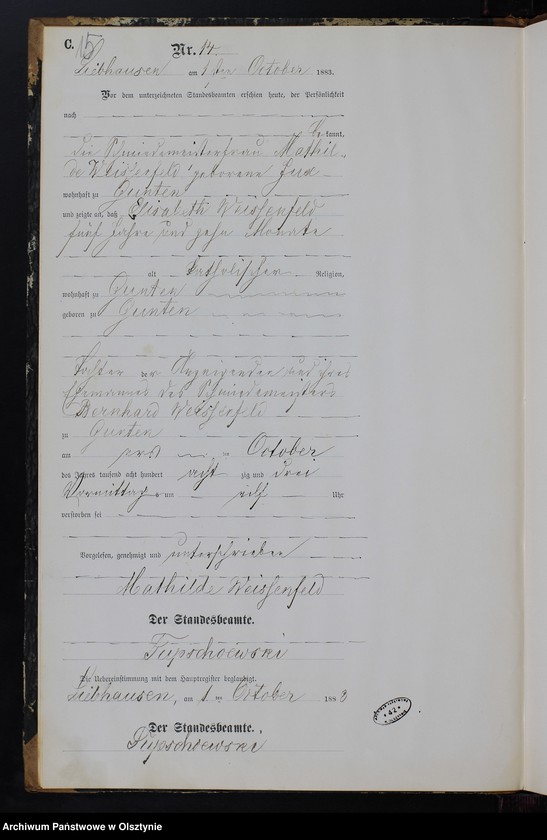 C.
15
Nr. 14.
Liebhausen am 1ten October 1883.
Vor dem unterzeichneten Standesbeamten erschien heute, der Persönlichkeit
nach
be kannt,
die Schmiedemeisterfrau Mathil-
de Weissenfeld geborene
wohnhaft zu Gunten
und zeigte an, daß Elisabeth Weissenfeld
fünf Jahre und zehn Monate
alt katholischer Religion,
wohnhaft zu Gunten
geboren zu Gunten
Tochter der Anzeigenden und ihres
Ehemannes des Schmiedemeisters
Bernhard Weissenfeld
zu Gunten
am ersten October
des Jahres tausend acht hundert acht zig und drei
Vormittags um Uhr
verstorben sei
Vorgelesen, genehmigt und unterschrieben
Mathilde Weissenfeld
Der Standesbeamte.
Die Uebereinstimmung mit dem Hauptregister beglaubigt.
Liebhausen, am 1. ten October 1883
Der Standesbeamte.
42
Archiwum Państwowe w Olsztynie